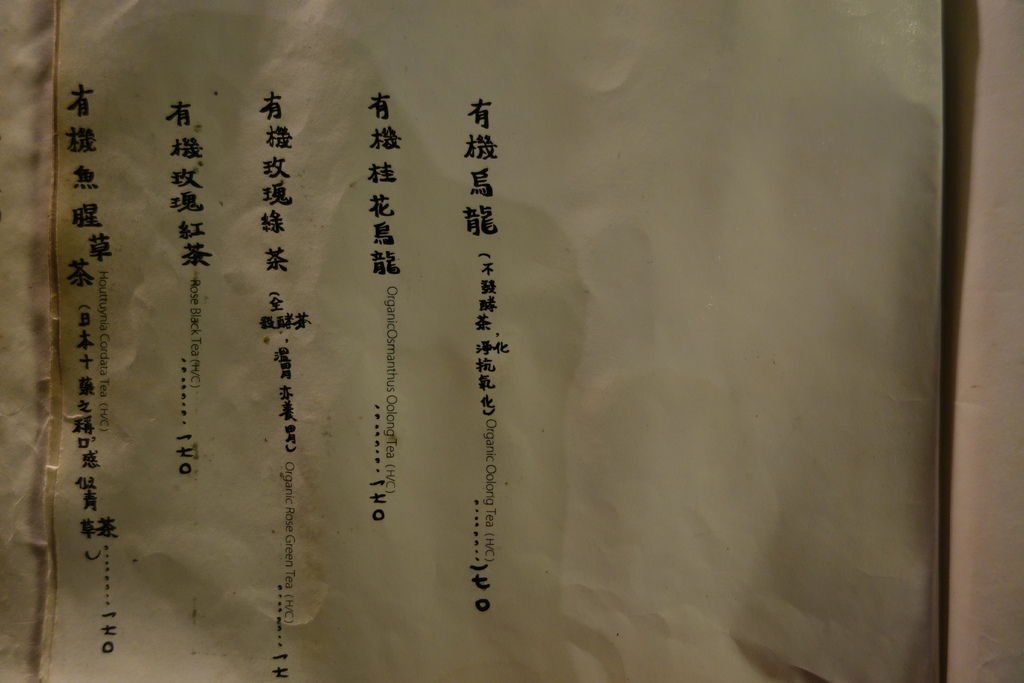 有機烏龍(不發酵茶,淨化抗氧化) Organic Oolong Tea (H/C) ........一七0
有機桂花烏龍 OrganicOsmanthus Oolong Tea (H/C) ........一七0
有機玫瑰綠茶(全發酵茶,溫胃亦養胃) Organic Rose Green Tea (H/C) ........一七
有機玫瑰紅茶 Rose Black Tea (H/C) ........一七0
有機魚腥草茶 Houttuynia Cordata Tea (H/C) (日本十藥之稱,口感似青草茶) ........一七0